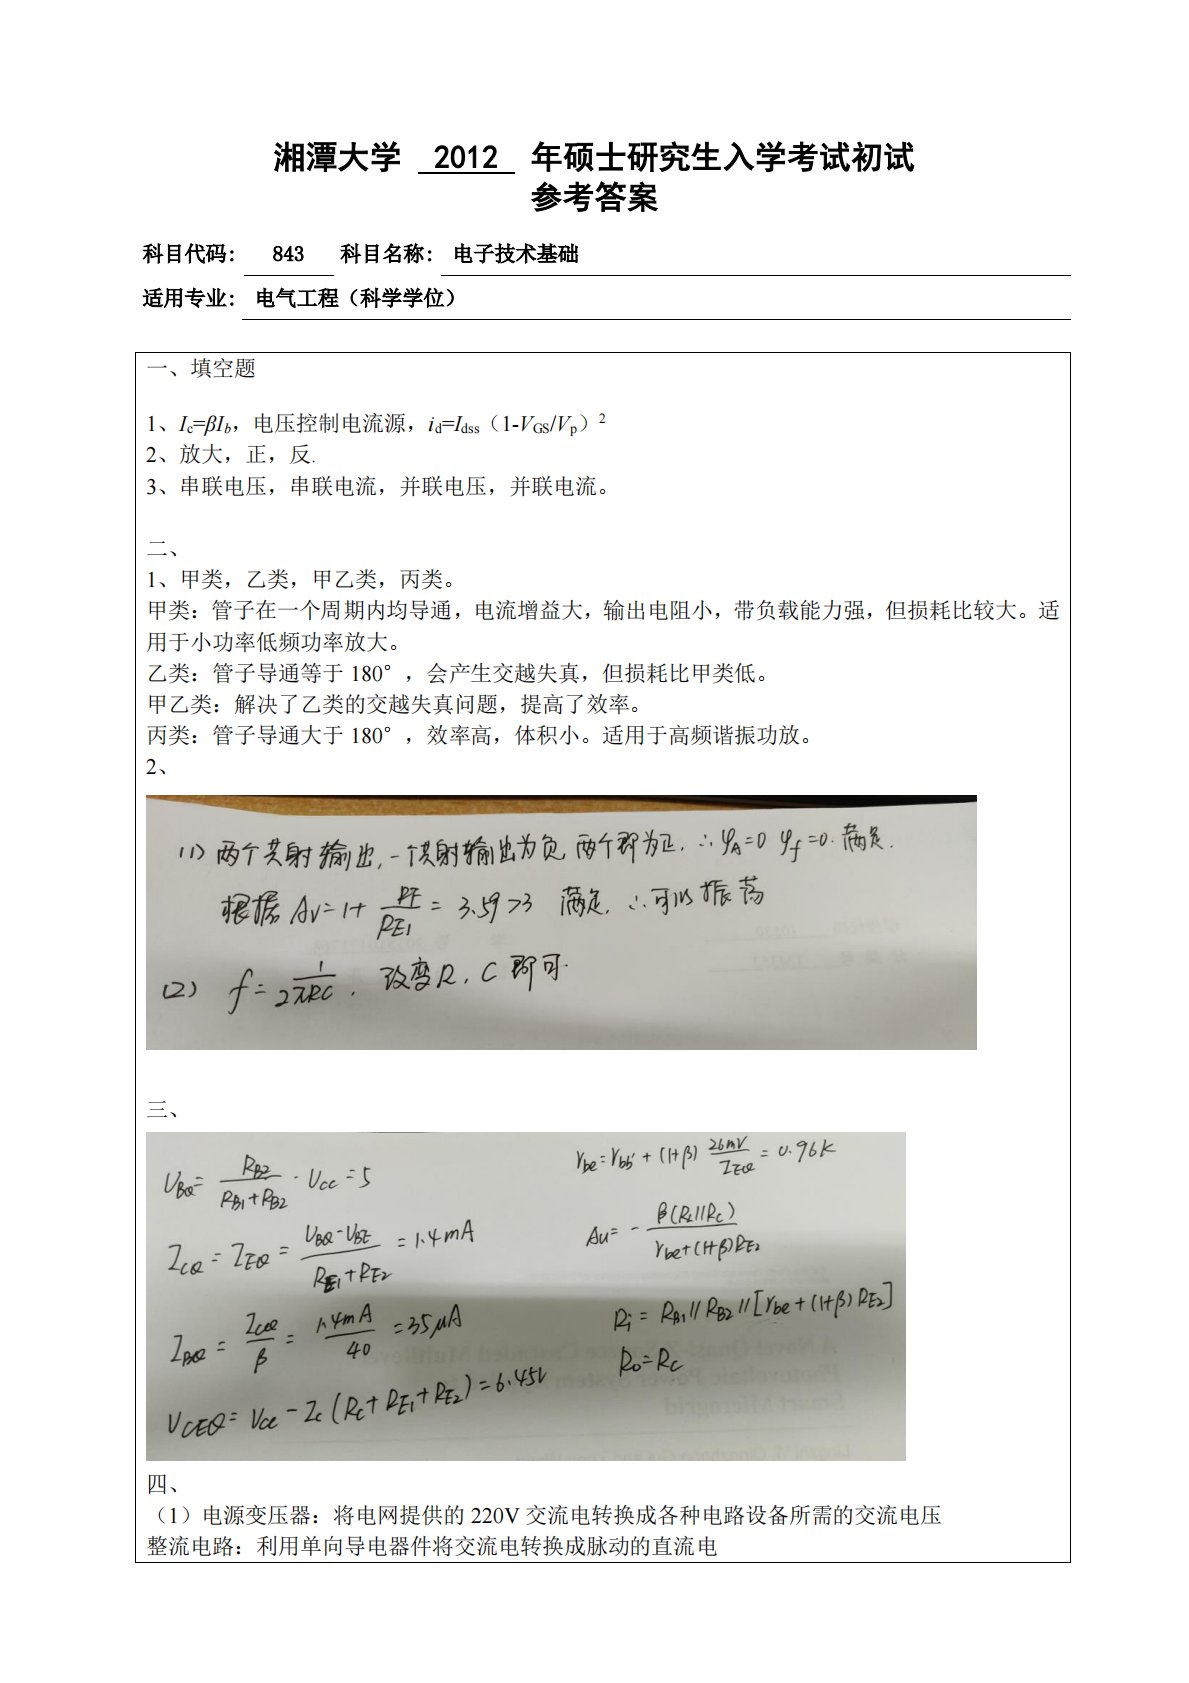 湘潭大学 2012 年硕士研究生入学考试初试
参考答案
科目代码： 843 科目名称： 电子技术基础
适用专业： 电气工程（科学学位）
一、填空题
1、Ic=βIb，电压控制电流源，id=Idss（1-VGS/Vp）²
2、放大，正，反.
3、串联电压，串联电流，并联电压，并联电流。
二、
1、甲类，乙类，甲乙类，丙类。
甲类：管子在一个周期内均导通，电流增益大，输出电阻小，带负载能力强，但损耗比较大。适
用于小功率低频功率放大。
乙类：管子导通等于 180°，会产生交越失真，但损耗比甲类低。
甲乙类：解决了乙类的交越失真问题，提高了效率。
丙类：管子导通大于 180°，效率高，体积小。适用于高频谐振功放。
2、
(1) 两个共射输出,一个共射输出为负,两个即为正. ∴φA=0 φf=0. 满足.
根据 Av=1+ RF/RE1 = 3.59>3 满足, ∴可以振荡
(2) f= 1/2πRC , 改变R, C 即可.
三、
UBQ= RB2/(RB1+RB2) · Vcc =5
ICQ = IEQ = (UBQ-UBE)/(RE1+RE2) = 1.4mA
IBQ = ICQ/β = 1.4mA/40 =35μA
VCEQ= Vcc - Ic (Rc+RE1+RE2) = 6.45V
rbe= rbb' + (1+β) 26mV/IEQ = 0.96K
Au= - β(RL//Rc)/(rbe+(1+β)RE2)
Ri = RB1//RB2//[rbe+(1+β)RE2]
Ro=Rc
四、
（1）电源变压器：将电网提供的 220V 交流电转换成各种电路设备所需的交流电压
整流电路：利用单向导电器件将交流电转换成脉动的直流电